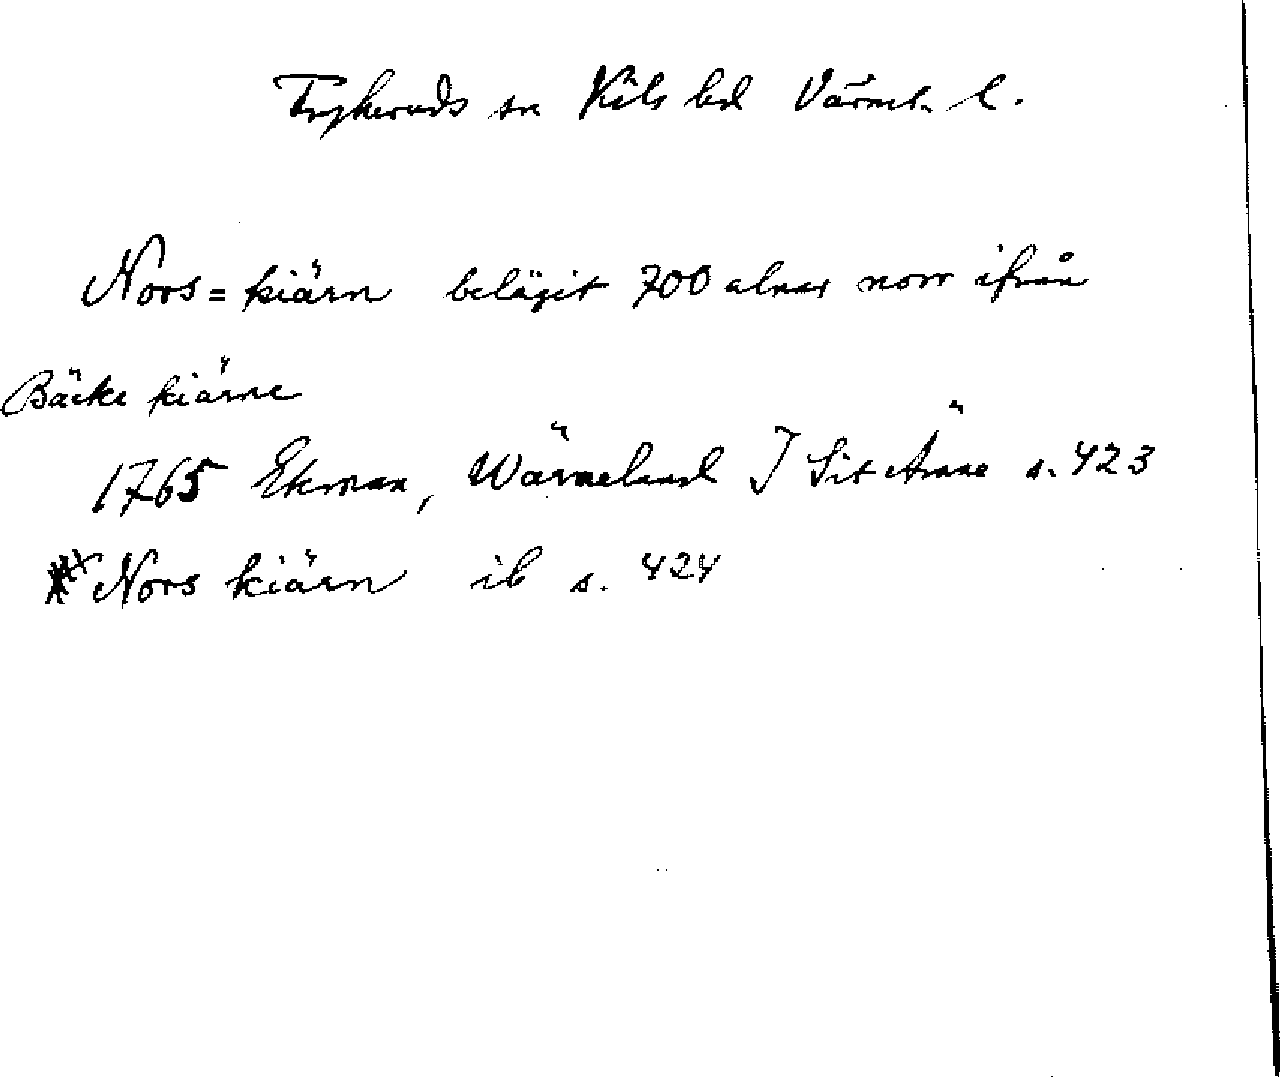 Frykeruds sn Kils hd Värml. l.
Nors=kiärn belägit 700 alnar norr ifrån
Bäcke kiärne
1765 Ekman, Wärmeland I Sit Ämne s. 423
Nors kiärn ib s. 424